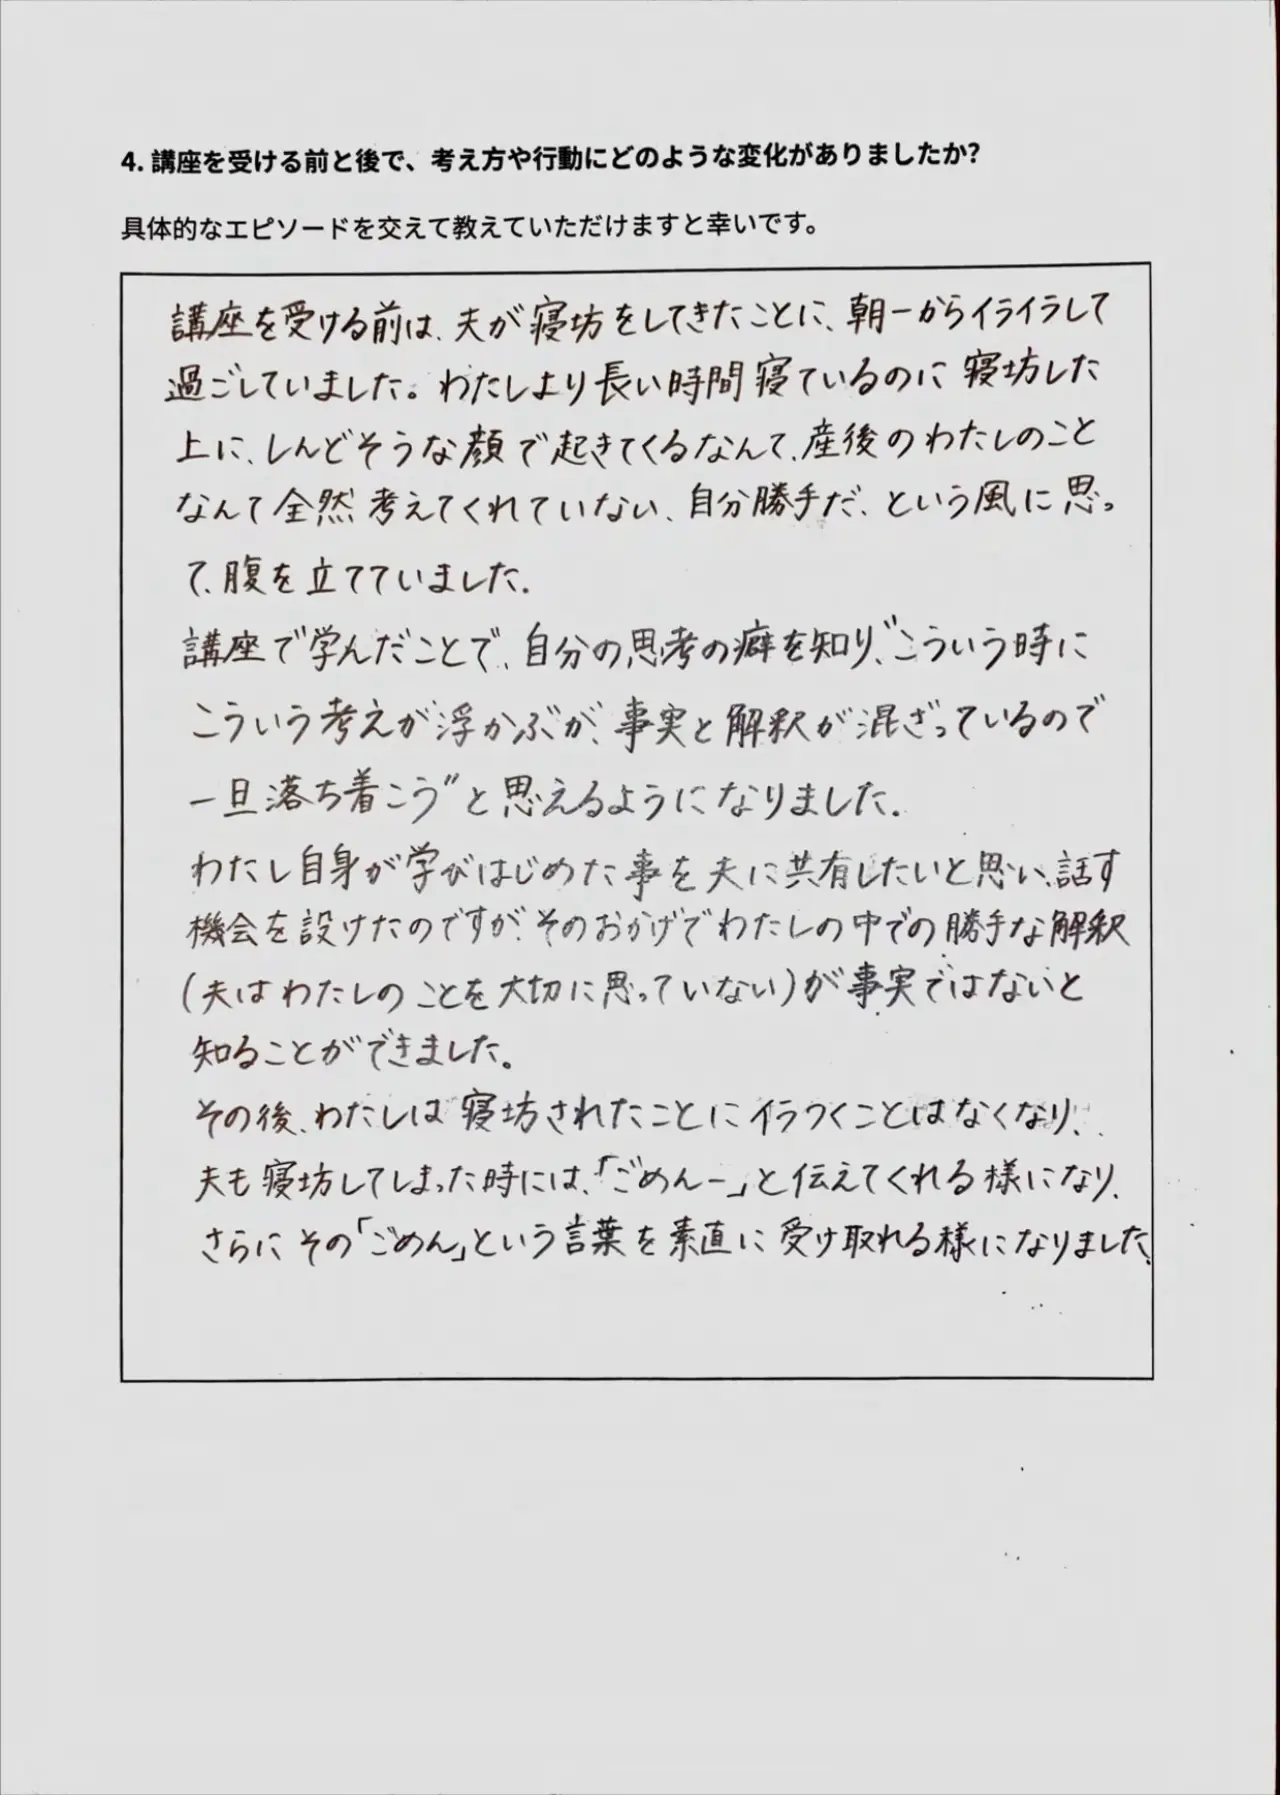 4. 講座を受ける前と後で、考え方や行動にどのような変化がありましたか?
具体的なエピソードを交えて教えていただけますと幸いです。
講座を受ける前は、夫が寝坊をしてきたことに、朝一からイライラして
過ごしていました。わたしより長い時間寝ているのに寝坊した
上に、しんどそうな顔で起きてくるなんて、産後のわたしのこと
なんて全然考えてくれていない、自分勝手だ、という風に思っ
て、腹を立てていました。
講座で学んだことで、自分の思考の癖を知り、"こういう時に
こういう考えが浮かぶが、事実と解釈が混ざっているので
一旦落ち着こう"と思えるようになりました。
わたし自身が学びはじめた事を夫に共有したいと思い、話す
機会を設けたのですが、そのおかげでわたしの中での勝手な解釈
(夫はわたしのことを大切に思っていない)が事実ではないと
知ることができました。
その後、わたしは寝坊されたことにイラつくことはなくなり、
夫も寝坊してしまった時には、「ごめんー」と伝えてくれる様になり、
さらにその「ごめん」という言葉を素直に受け取れる様になりました。